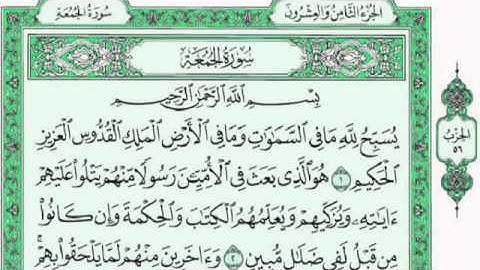 الجزء الثامن والعشرون
سورة الجمعة
سُورَةُ الجُمُعَةِ
بِسْمِ ٱللَّهِ ٱلرَّحْمَٰنِ ٱلرَّحِيمِ
يُسَبِّحُ لِلَّهِ مَا فِى ٱلسَّمَٰوَٰتِ وَمَا فِى ٱلْأَرْضِ ٱلْمَلِكِ ٱلْقُدُّوسِ ٱلْعَزِيزِ
ٱلْحَكِيمِ ١ هُوَ ٱلَّذِى بَعَثَ فِى ٱلْأُمِّيِّـۧنَ رَسُولًا مِّنْهُمْ يَتْلُوا۟ عَلَيْهِمْ
ءَايَٰتِهِۦ وَيُزَكِّيهِمْ وَيُعَلِّمُهُمُ ٱلْكِتَٰبَ وَٱلْحِكْمَةَ وَإِن كَانُوا۟
مِن قَبْلُ لَفِى ضَلَٰلٍ مُّبِينٍ ٢ وَءَاخَرِينَ مِنْهُمْ لَمَّا يَلْحَقُوا۟ بِهِمْ ۚ
الحزب
٥٦